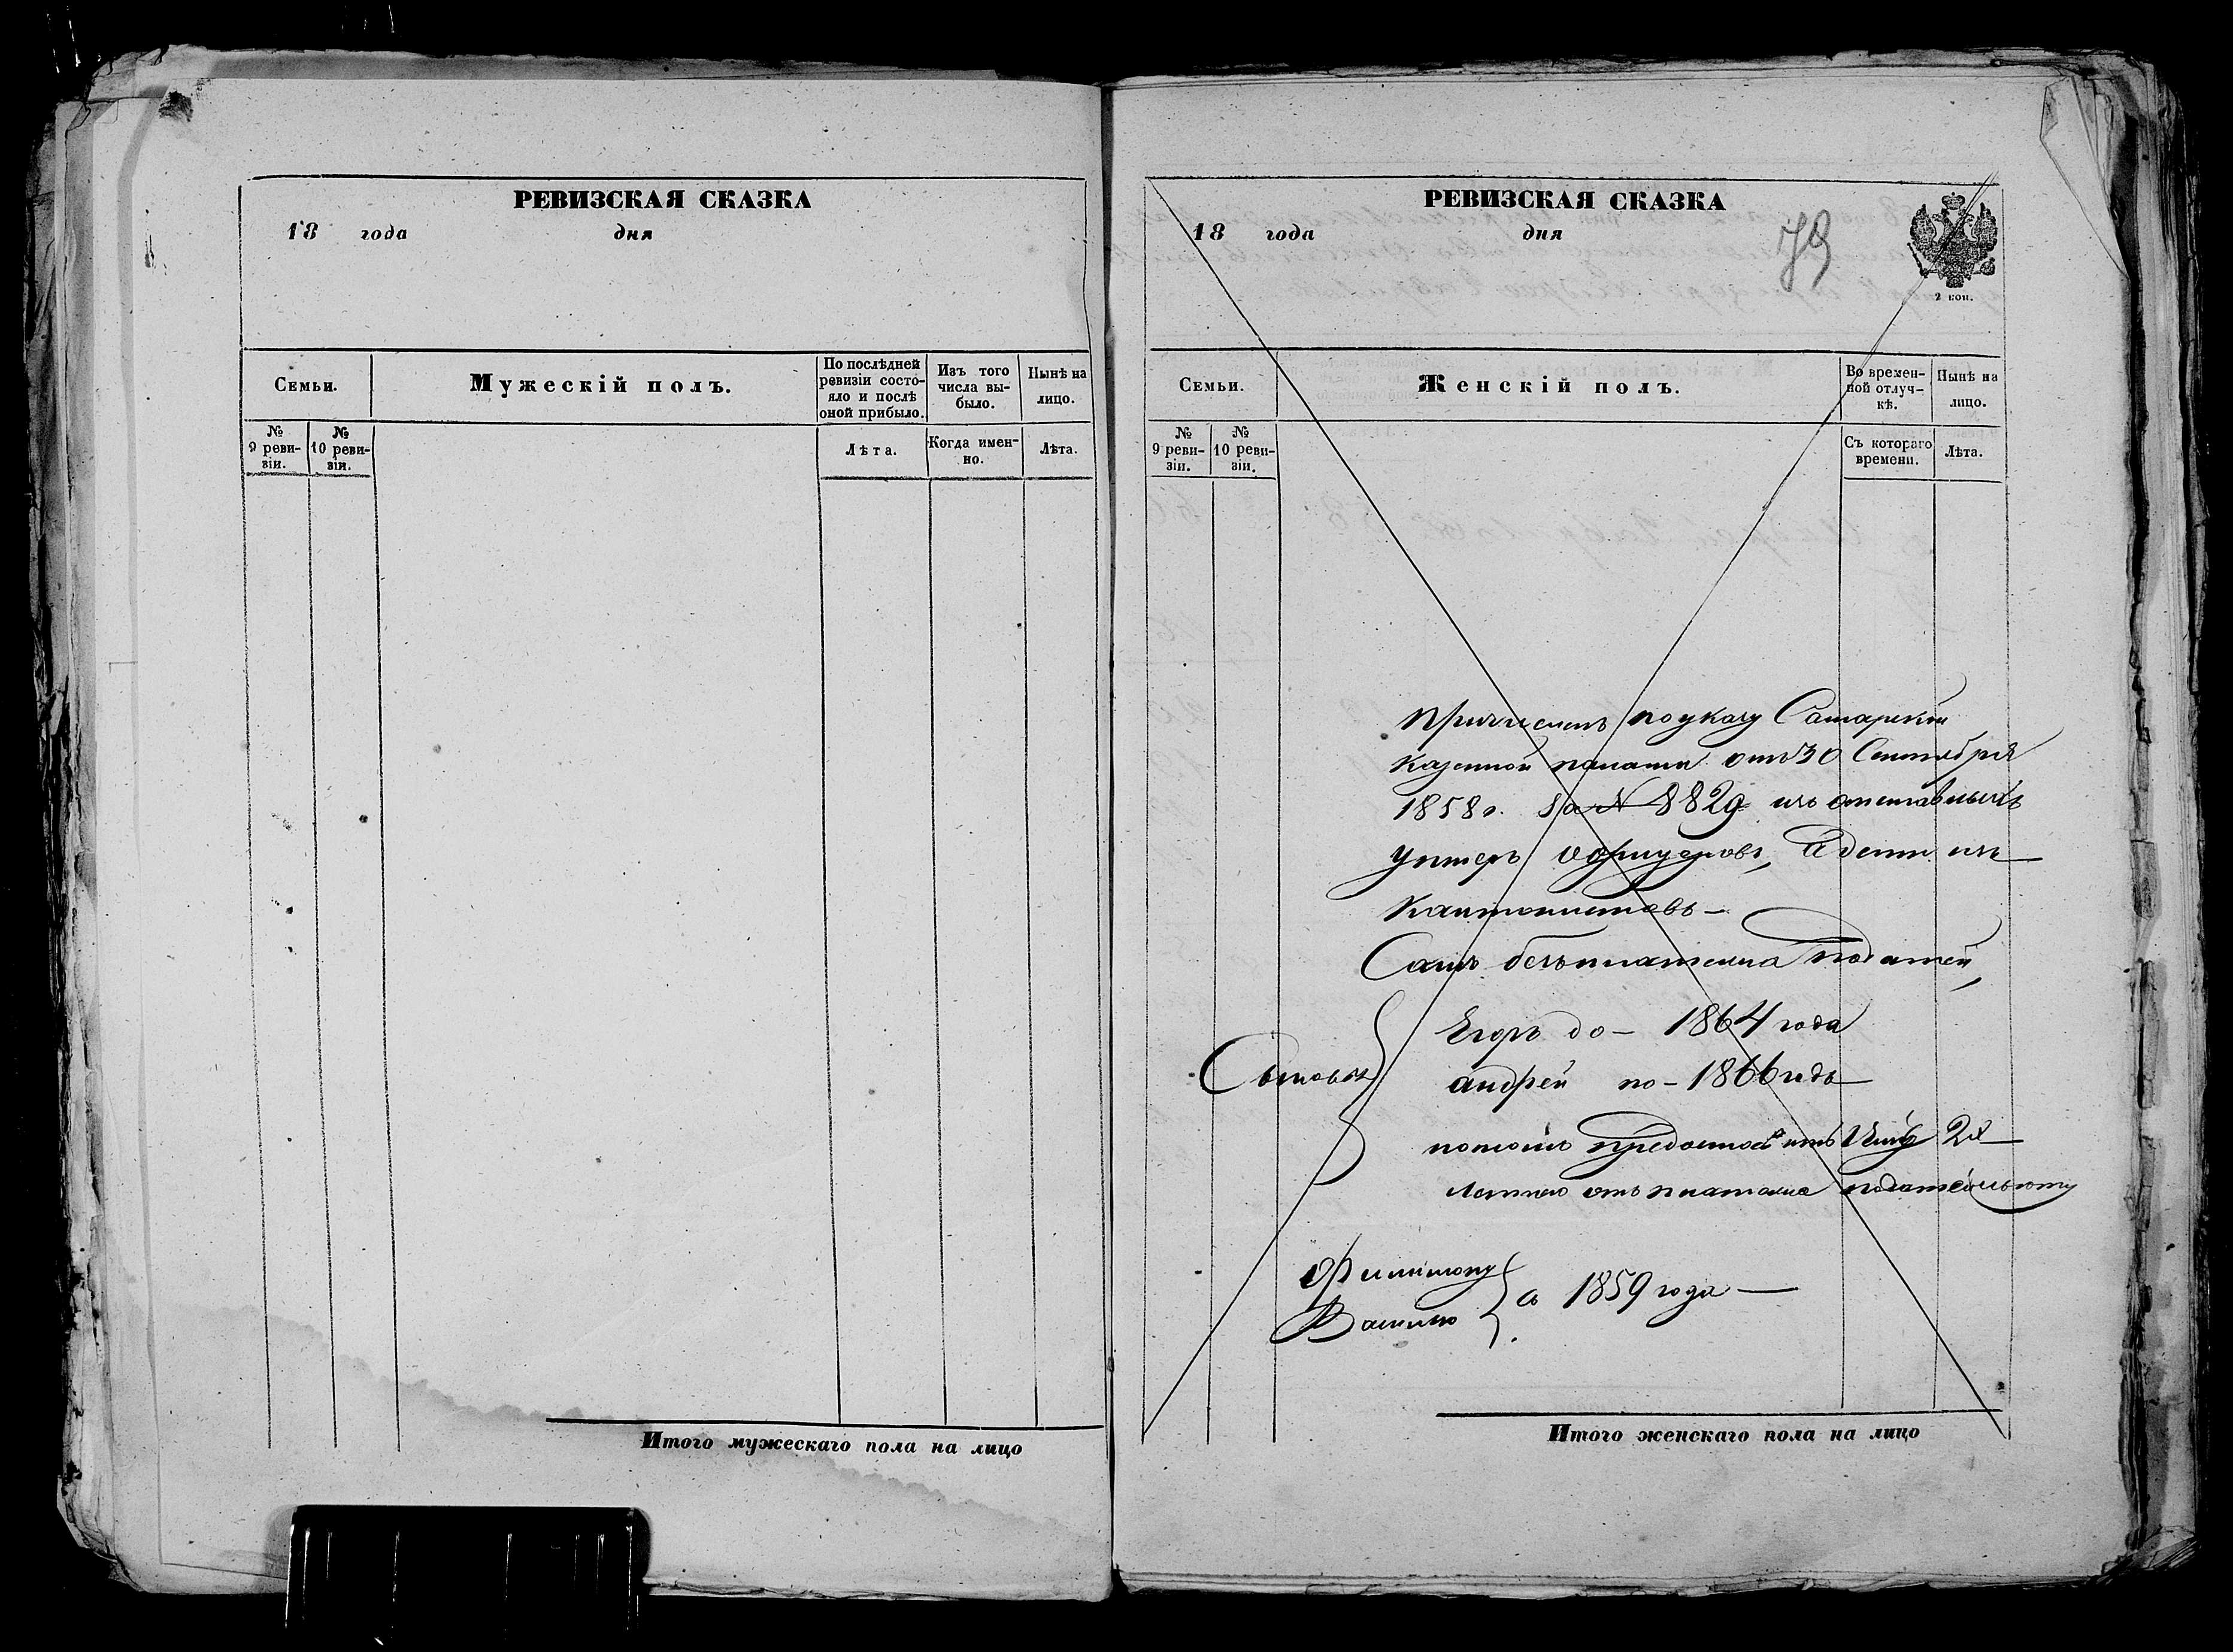 РЕВИЗСКАЯ СКАЗКА
18 года дня
Семьи.
Мужескій полъ.
По послѣдней ревизіи состо-
яло и послѣ
оной прибыло.
Изъ того
числа вы-
было.
Нынѣ на
лицо.
№
9 реви-
зіи.
№
10 реви-
зіи.
Лѣта.
Когда имен-
но.
Лѣта.
Итого мужескаго пола на лицо
РЕВИЗСКАЯ СКАЗКА
18 года дня
79
2 коп.
Семьи.
Женскій полъ.
Во времен-
ной отлуч-
кѣ.
Нынѣ на
лицо.
№
9 реви-
зіи.
№
10 реви-
зіи.
Съ котораго
времени.
Лѣта.
Причисленъ по указу Самарской
Казенной палаты отъ 30 Сентября
1858 г. за № 8829 изъ отставныхъ
унтеръ офицеровъ, а дети изъ
Кантонистовъ —
Самъ безъ платежа податей,
Сыновья
Егоръ до — 1864 года
андрей по — 1866 годъ
2х
летнею отъ платежа
Филимону
Василью
съ 1859 года —
Итого женскаго пола на лицо